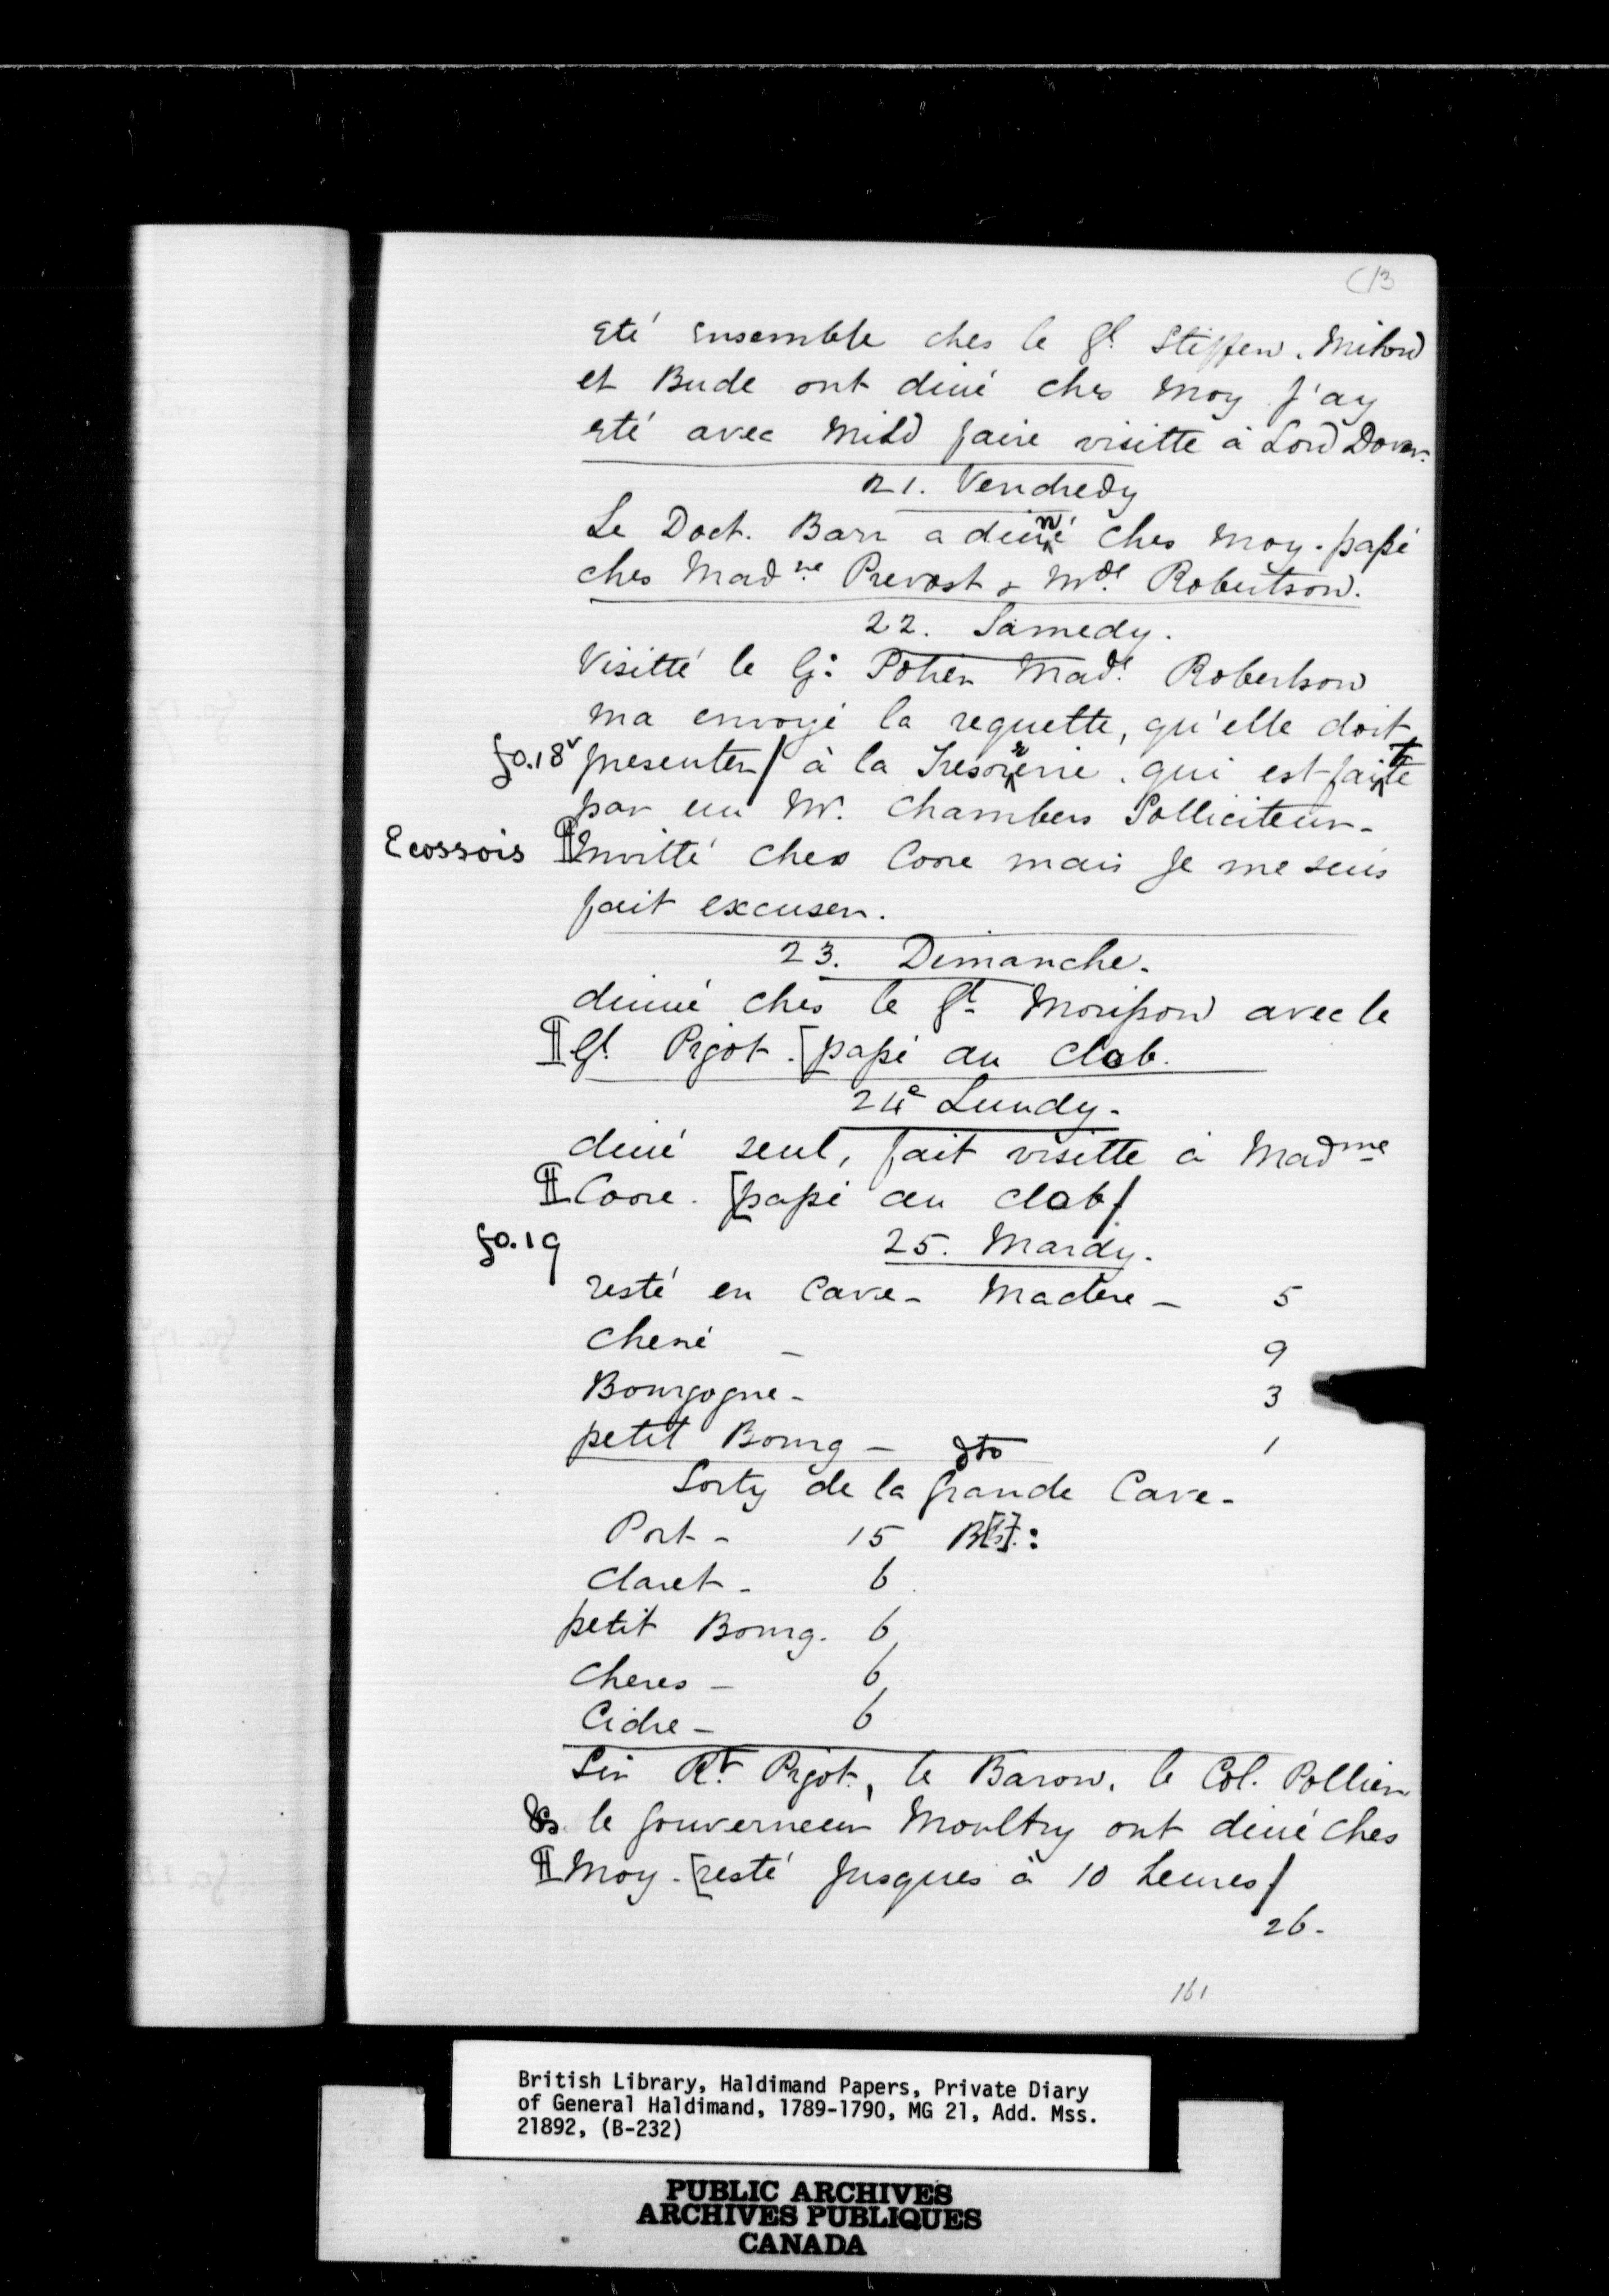 (13
eté ensemble ches le gl. Steffen. Milord
et Bude ont diné ches moy j'ay
eté avec Mild faire visitte à Lord Dover.
21. Vendredy
Le Doct. Barr a dinné ches moy. passé
ches Madme Prevost & Mde Robertson.
22. Samedy.
Visitté le G: Madl Robertson
ma envoyé la requette, qu'elle doit
fo.18v presenter/ à la Tresorrerie. qui est faitte
par un Mr. Chambers Solliciteur-
Ecossois Invitté ches Corre mais je me suis
fait excuser.
23. Dimanche.
dinné ches le gl Morisson avec le
Gl. Pigot. [passé au clob.
24e Lundy.
diné seul, fait visitte à Madme
Corre. [passé au clob/
fo.19 25. Mardy.
resté en Cave - Madere - 5
Cheré - 9
Bourgogne - 3
petit Bourg - dto 1
Sorty de la grande Cave -
Port - 15 B[t]:
Claret - 6
petit Bourg. 6
Cheres - 6
Cidre - 6
Sir Rt Pigot, le Baron, le Col. Pollier
& le gouverneur Moultry ont diné ches
moy. [resté jusques à 10 heures/
26-
161
British Library, Haldimand Papers, Private Diary
of General Haldimand, 1789-1790, MG 21, Add. Mss.
21892, (B-232)
PUBLIC ARCHIVES
ARCHIVES PUBLIQUES
CANADA